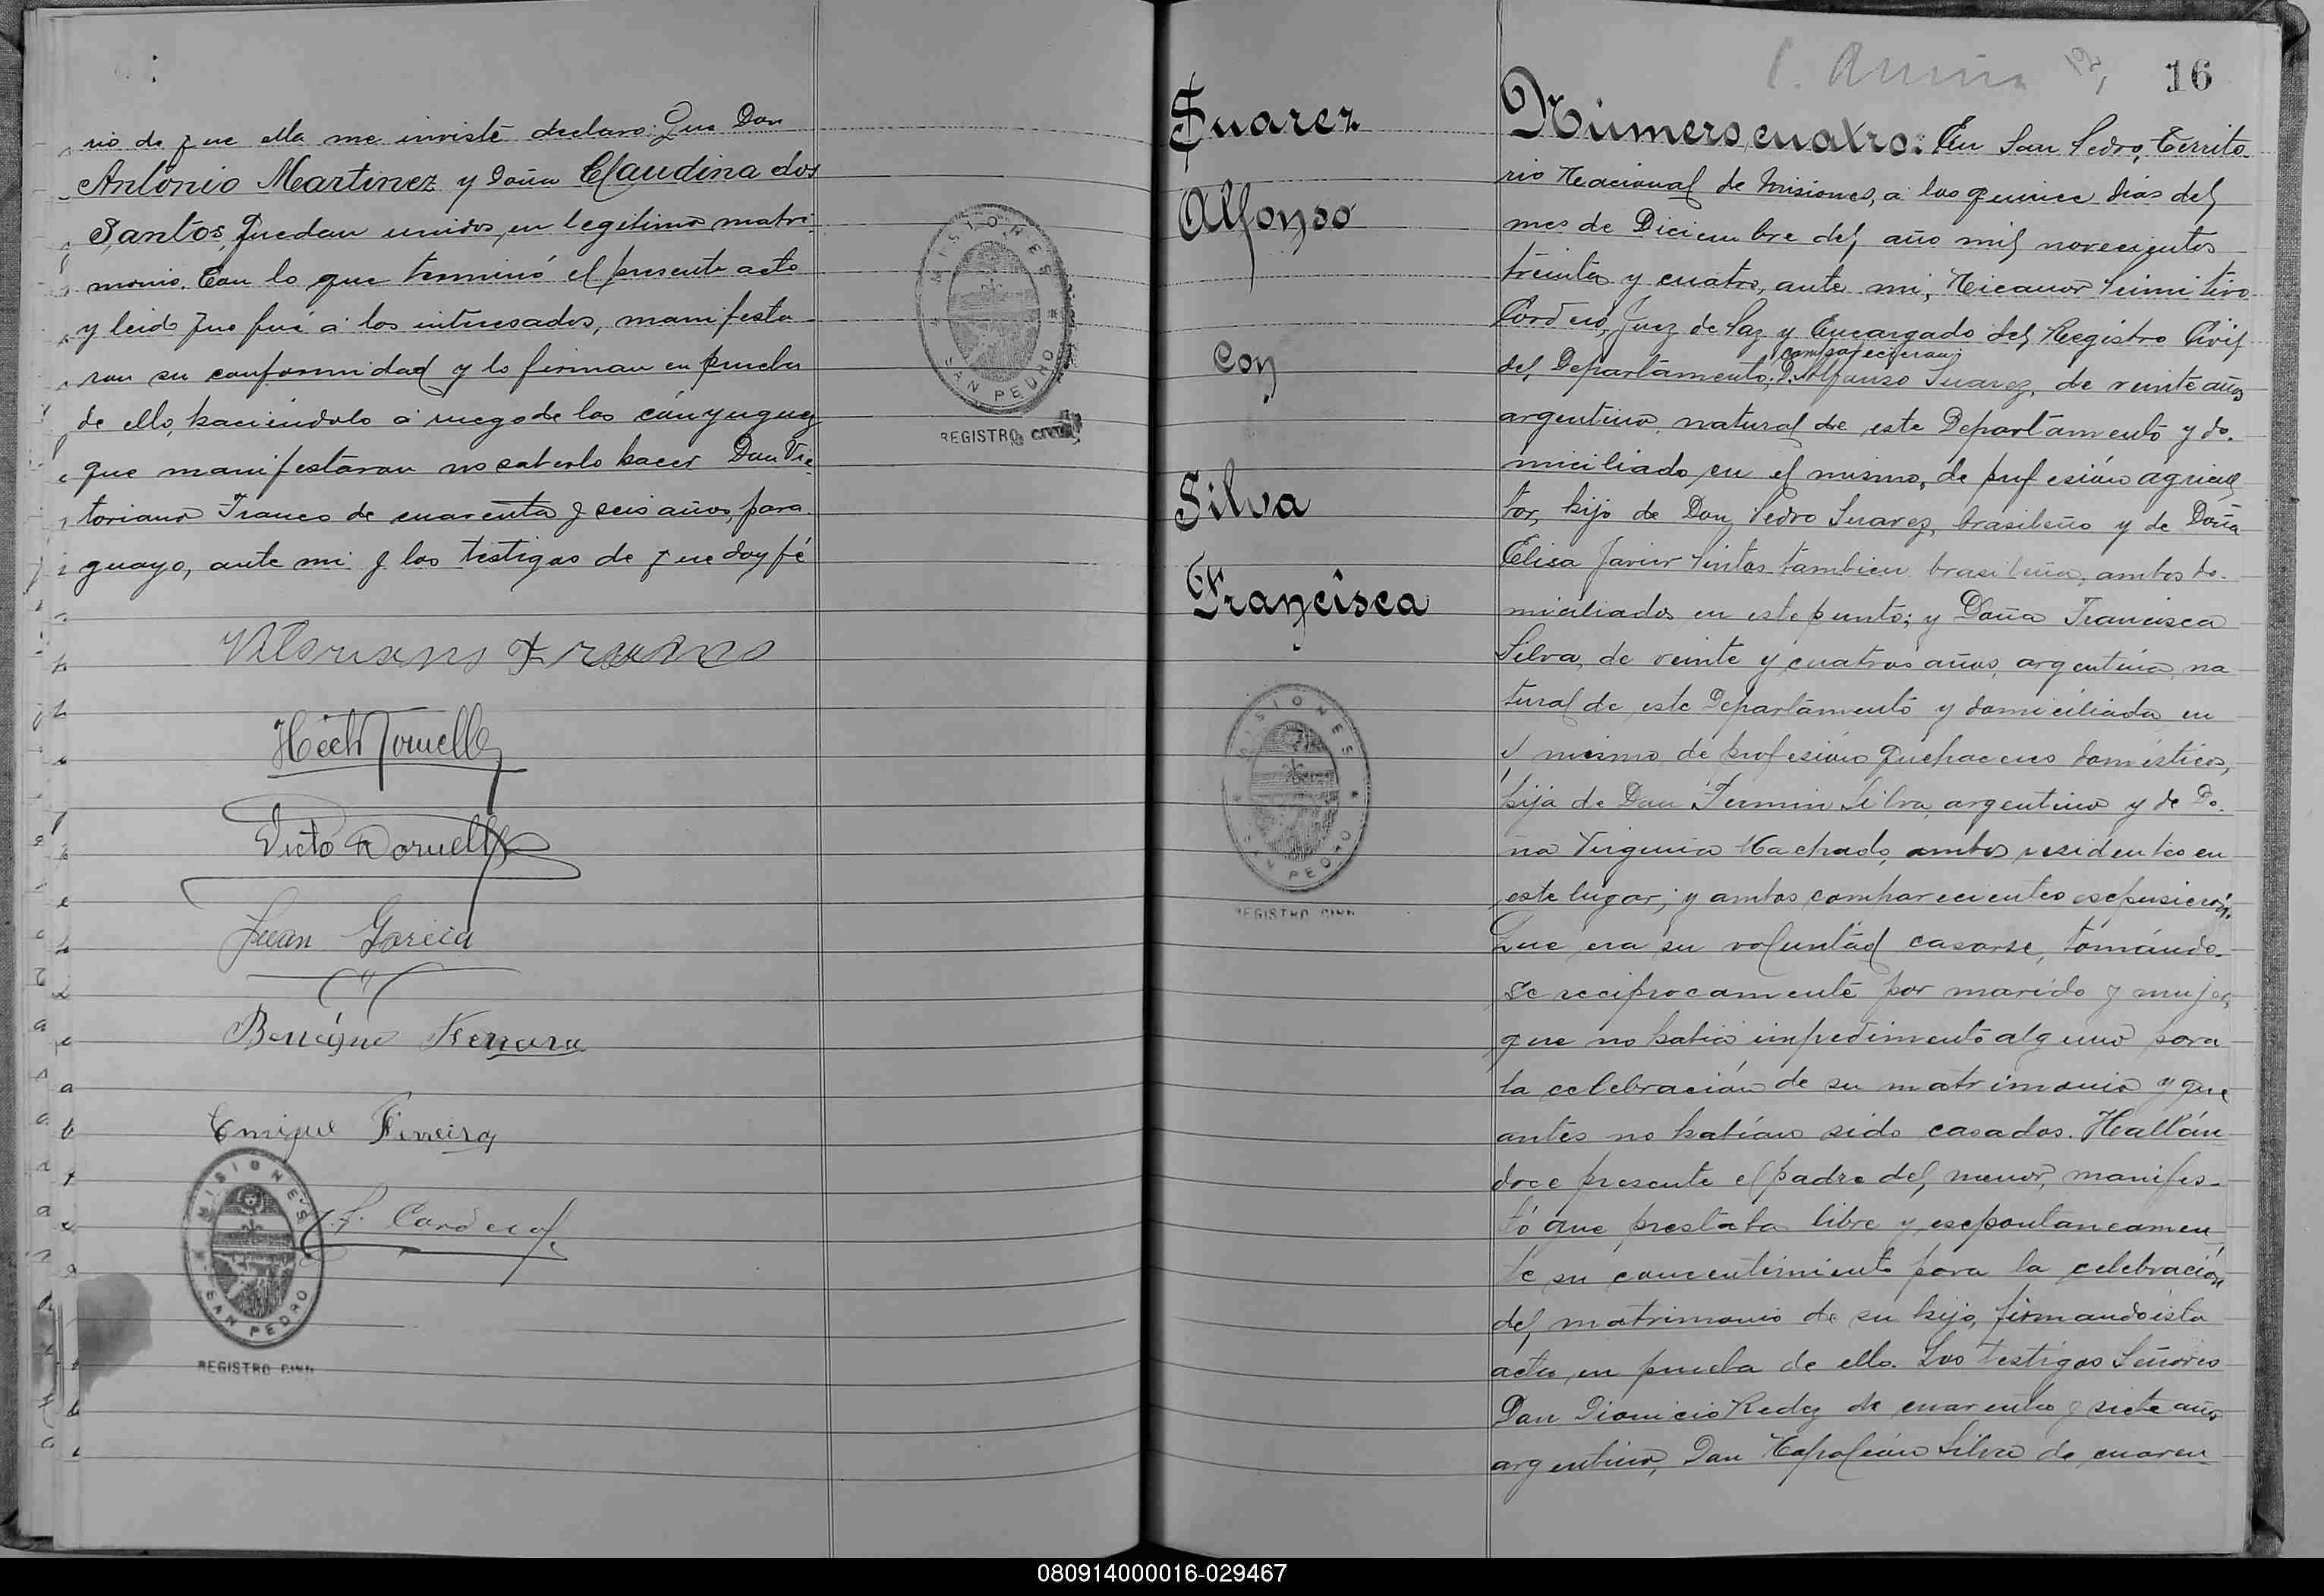 rio de que ella me inviste declaro: Que Don
Antonio Martinez y Doña Claudina dos
Santos, quedan unidos, en legitimo matri-
monio. Con lo que terminó el presente acto
y leido que fué á los interesados, manifesta-
ron su conformidad y lo firman en prueba
de ello, haciéndolo á ruego de los cónyugues
que manifestaron no saberlo hacer Don Vic-
toriano Franco de cuarenta y seis años, para-
guayo, ante mi y los testigos de que doy fé
Juan Garcia
Enrique Ferreira
Cordero
MISIONES
SAN PEDRO
REGISTRO CIVIL
MISIONES
SAN PEDRO
REGISTRO CIVIL
16
Suarez
Alfonso
con
Silva
Francisca
MISIONES
SAN PEDRO
REGISTRO CIVIL
Número cuatro: En San Pedro, Territo-
rio Nacional de Misiones, á los quince dias del
mes de Diciembre del año mil novecientos
treinta y cuatro, ante mi, Nicanor Primitivo
Cordero, Juez de Paz y Encargado del Registro Civil
comparecieron
del Departamento, D. Alfonso Suarez, de veinte años
argentino, natural de este Departamento y do-
miciliado en el mismo, de profesión agricul
tor, hijo de Don Pedro Suarez, brasileño y de Doña
Elisa Javier Pintos tambien brasileña, ambos do-
miciliados en este punto; y Doña Francisca
Silva, de veinte y cuatros años, argentina, na
tural de este Departamento y domiciliada en
el mismo, de profesión quehaceres domésticos,
hija de Don Fermin Silva, argentino y de Do-
ña Virginia Machado, ambos residentes en
este lugar; y ambos comparecientes esepusierón:
Que era su voluntad casarse, tomándo-
se reciprocamente por marido y mujer,
que no habia impedimento alguno para
la celebración de su matrimonio y que
antes no habian sido casados. Hallán
doce presente el padre del menor, manifes-
tó que prestaba libre y esepontaneamen
te su concentimiento para la celebración
del matrimonio de su hijo, firmando ésta
acta en prueba de ello. Los testigos Señores
Don Dionicio Redez de cuarenta y siete años
argentino, Don Napoleón Silva de cuaren
080914000016-029467